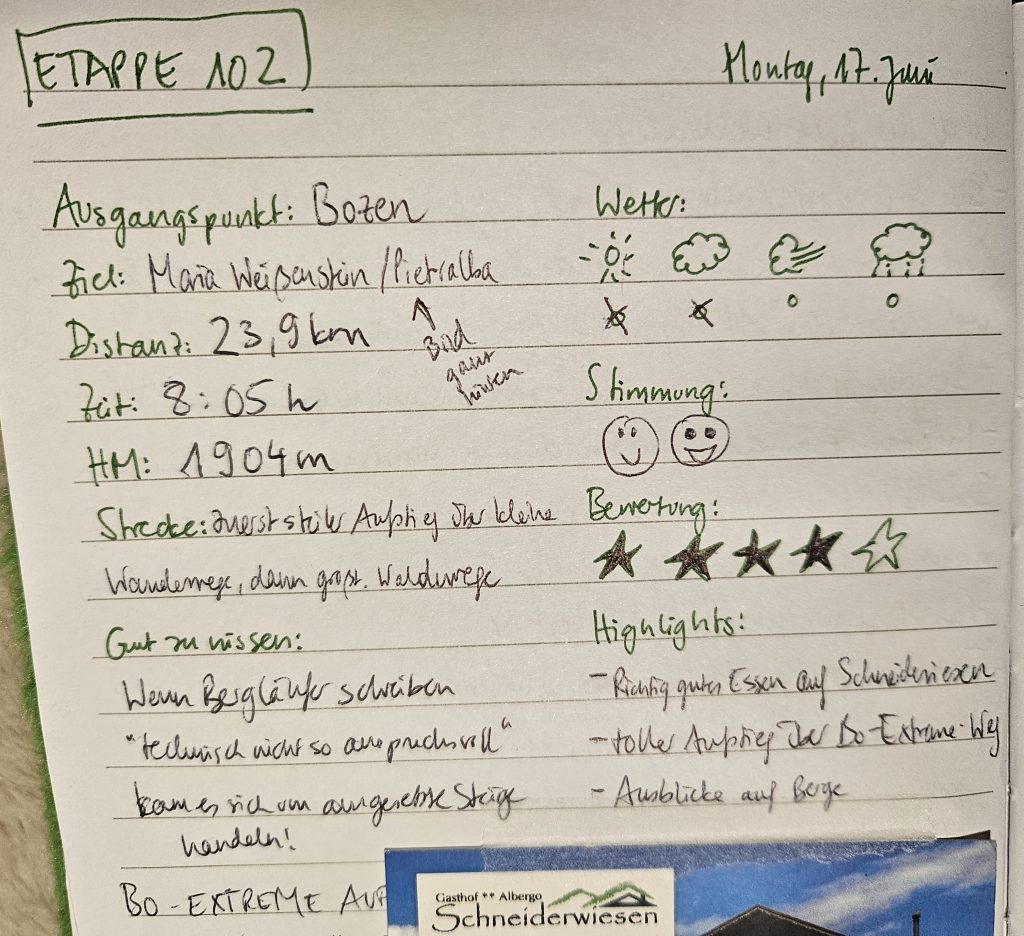 ETAPPE 102
Montag, 17. Juni
Ausgangspunkt: Bozen
Ziel: Maria Weißenstein/Pietralba
Bild
ganz
hinten
Distanz: 23,9 km
Zeit: 8:05 h
HM: 1904m
Strecke: zuerst steiler Aufstieg über kleine
Wanderwege, dann größt. Waldwege
Gut zu wissen:
Wenn Bergläufer schreiben
"technisch nicht so anspruchsvoll"
kann es sich um ausgesetzte Steige
handeln!
BO-EXTREME AUF
Wetter:
Stimmung:
Bewertung:
Highlights:
- Richtig gutes Essen auf Schneiderwiesen
- toller Aufstieg über Bo-Extreme-Weg
- Ausblicke auf Berge
Gasthof ** Albergo
Schneiderwiesen